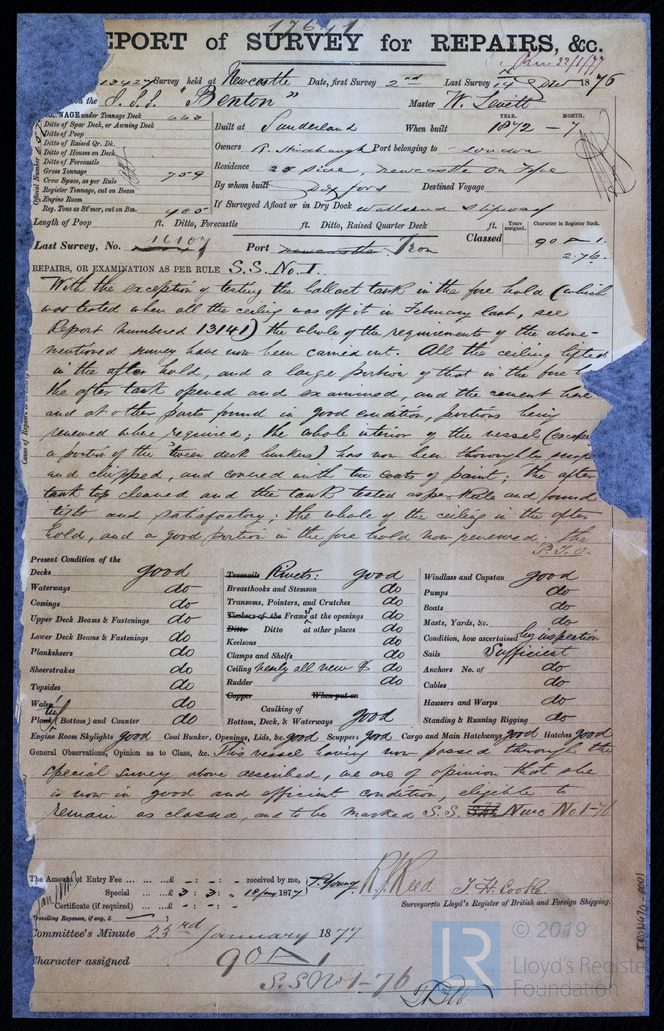 17641
EPORT of SURVEY for REPAIRS, &c.
Rec 22/1/77
13427 Survey held at Newcastle Date, first Survey 2nd Last Survey 14 Decr 1876
on the S.S. "Benton" Master W. Levett
NAGE under Tonnage Deck 663
Ditto of Spar Deck, or Awning Deck
Ditto of Poop
Ditto of Raised Qr. Dk.
Ditto of Houses on Deck
Ditto of Forecastle
Gross Tonnage 709
Crew Space, as per Rule
Register Tonnage, cut on Beam
Engine Room
Reg. Tons as St'mer, cut on Bm. 400
Official Number
Built at Sunderland When built YEAR. 1872 - MONTH. 7
Owners R. Port belonging to London
Residence Side, Newcastle on Tyne
By whom built Destined Voyage
If Surveyed Afloat or in Dry Dock Wallsend Slipway
Length of Poop ft. Ditto, Forecastle ft. Ditto, Raised Quarter Deck ft.
Years assigned. Character in Register Book.
Last Survey, No. 16107 Port Newcastle Iron Classed 90 A 1.
2.76.
REPAIRS, OR EXAMINATION AS PER RULE S.S. No. 1.
With the exception of testing the ballast tank in the fore hold (which
was tested when all the ceiling was off it in February last, see
Report numbered 13141) the whole of the requirements of the above-
mentioned survey have now been carried out. All the ceiling lifted
in the after hold, and a large portion of that in the fore h
the after tank opened and examined, and the cement there
and at other parts found in good condition, portions being
renewed where required; the whole interior of the vessel (except
a portion of the 'tween deck bunkers) has now been thoroughly scrap
and chipped, and covered with two coats of paint; the after
tank top cleaned and the tank tested as per Rule and found
tight and satisfactory; the whole of the ceiling in the after
hold, and a good portion in the fore hold now renewed; the
P.T.O.
Present Condition of the
Decks good
Waterways do
Comings do
Upper Deck Beams & Fastenings do
Lower Deck Beams & Fastenings do
Planksheers do
Sheerstrakes do
Topsides do
Wales do
Plank (Bottom) and Counter do
Treenails Rivets: good
Breasthooks and Stemson do
Transoms, Pointers, and Crutches do
Timbers of the Frames at the openings do
Ditto Ditto at other places do
Keelsons do
Clamps and Shelfs do
Ceiling nearly all new & do
Rudder do
Copper When put on
Caulking of
Bottom, Deck, & Waterways good
Windlass and Capstan good
Pumps do
Boats do
Masts, Yards, &c. do
Condition, how ascertained by inspection
Sails Sufficient
Anchors No. of do
Cables do
Hawsers and Warps do
Standing & Running Rigging do
Engine Room Skylights good Coal Bunker, Openings, Lids, &c. good Scuppers good Cargo and Main Hatchways good Hatches good
General Observations, Opinion as to Class, &c. This vessel having now passed through the
special survey above described, we are of opinion that she
is now in good and efficient condition, eligible to
remain as classed, and to be marked S.S. Nwc No 1-76
The Amount of Entry Fee £ - : - : - received by me,
Special £ 3 : 3 : - 18 Jany 1877 T. Young R. J. Reed J. H. Cooke
Certificate (if required) - : - : -
Travelling Expenses, if any, £
Surveyor to Lloyd's Register of British and Foreign Shipping.
Committee's Minute 23rd January 1877
Character assigned 90 A 1
S.S. No 1-76
IRON670-0001
LR
© 2019
Lloyd's Registe
Foundation